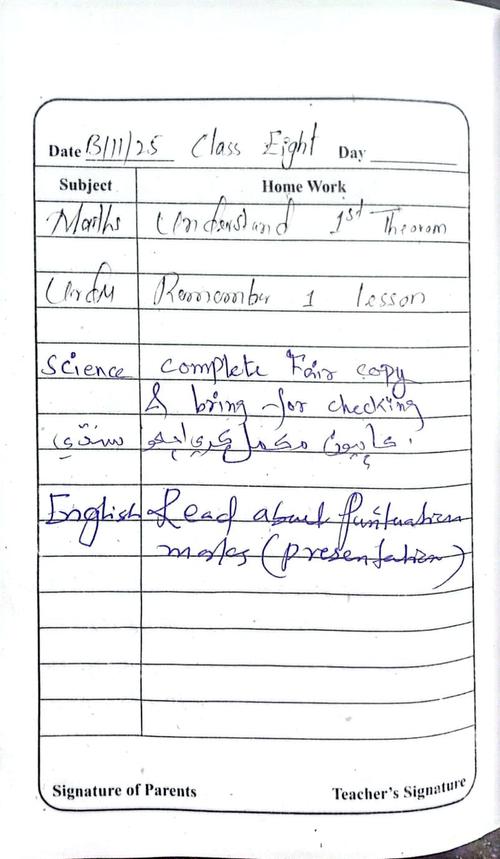 Date 13/11/25 Class Eight Day
Subject Home Work
Maths Understand 1st Theorom
Urdu Remember 1 lesson
Science complete Fair copy
& bring for checking
سنڌي ڪاپيون مڪمل ڪري اچو
English Read about Puntuation
marks (presentation)
Signature of Parents Teacher's Signature